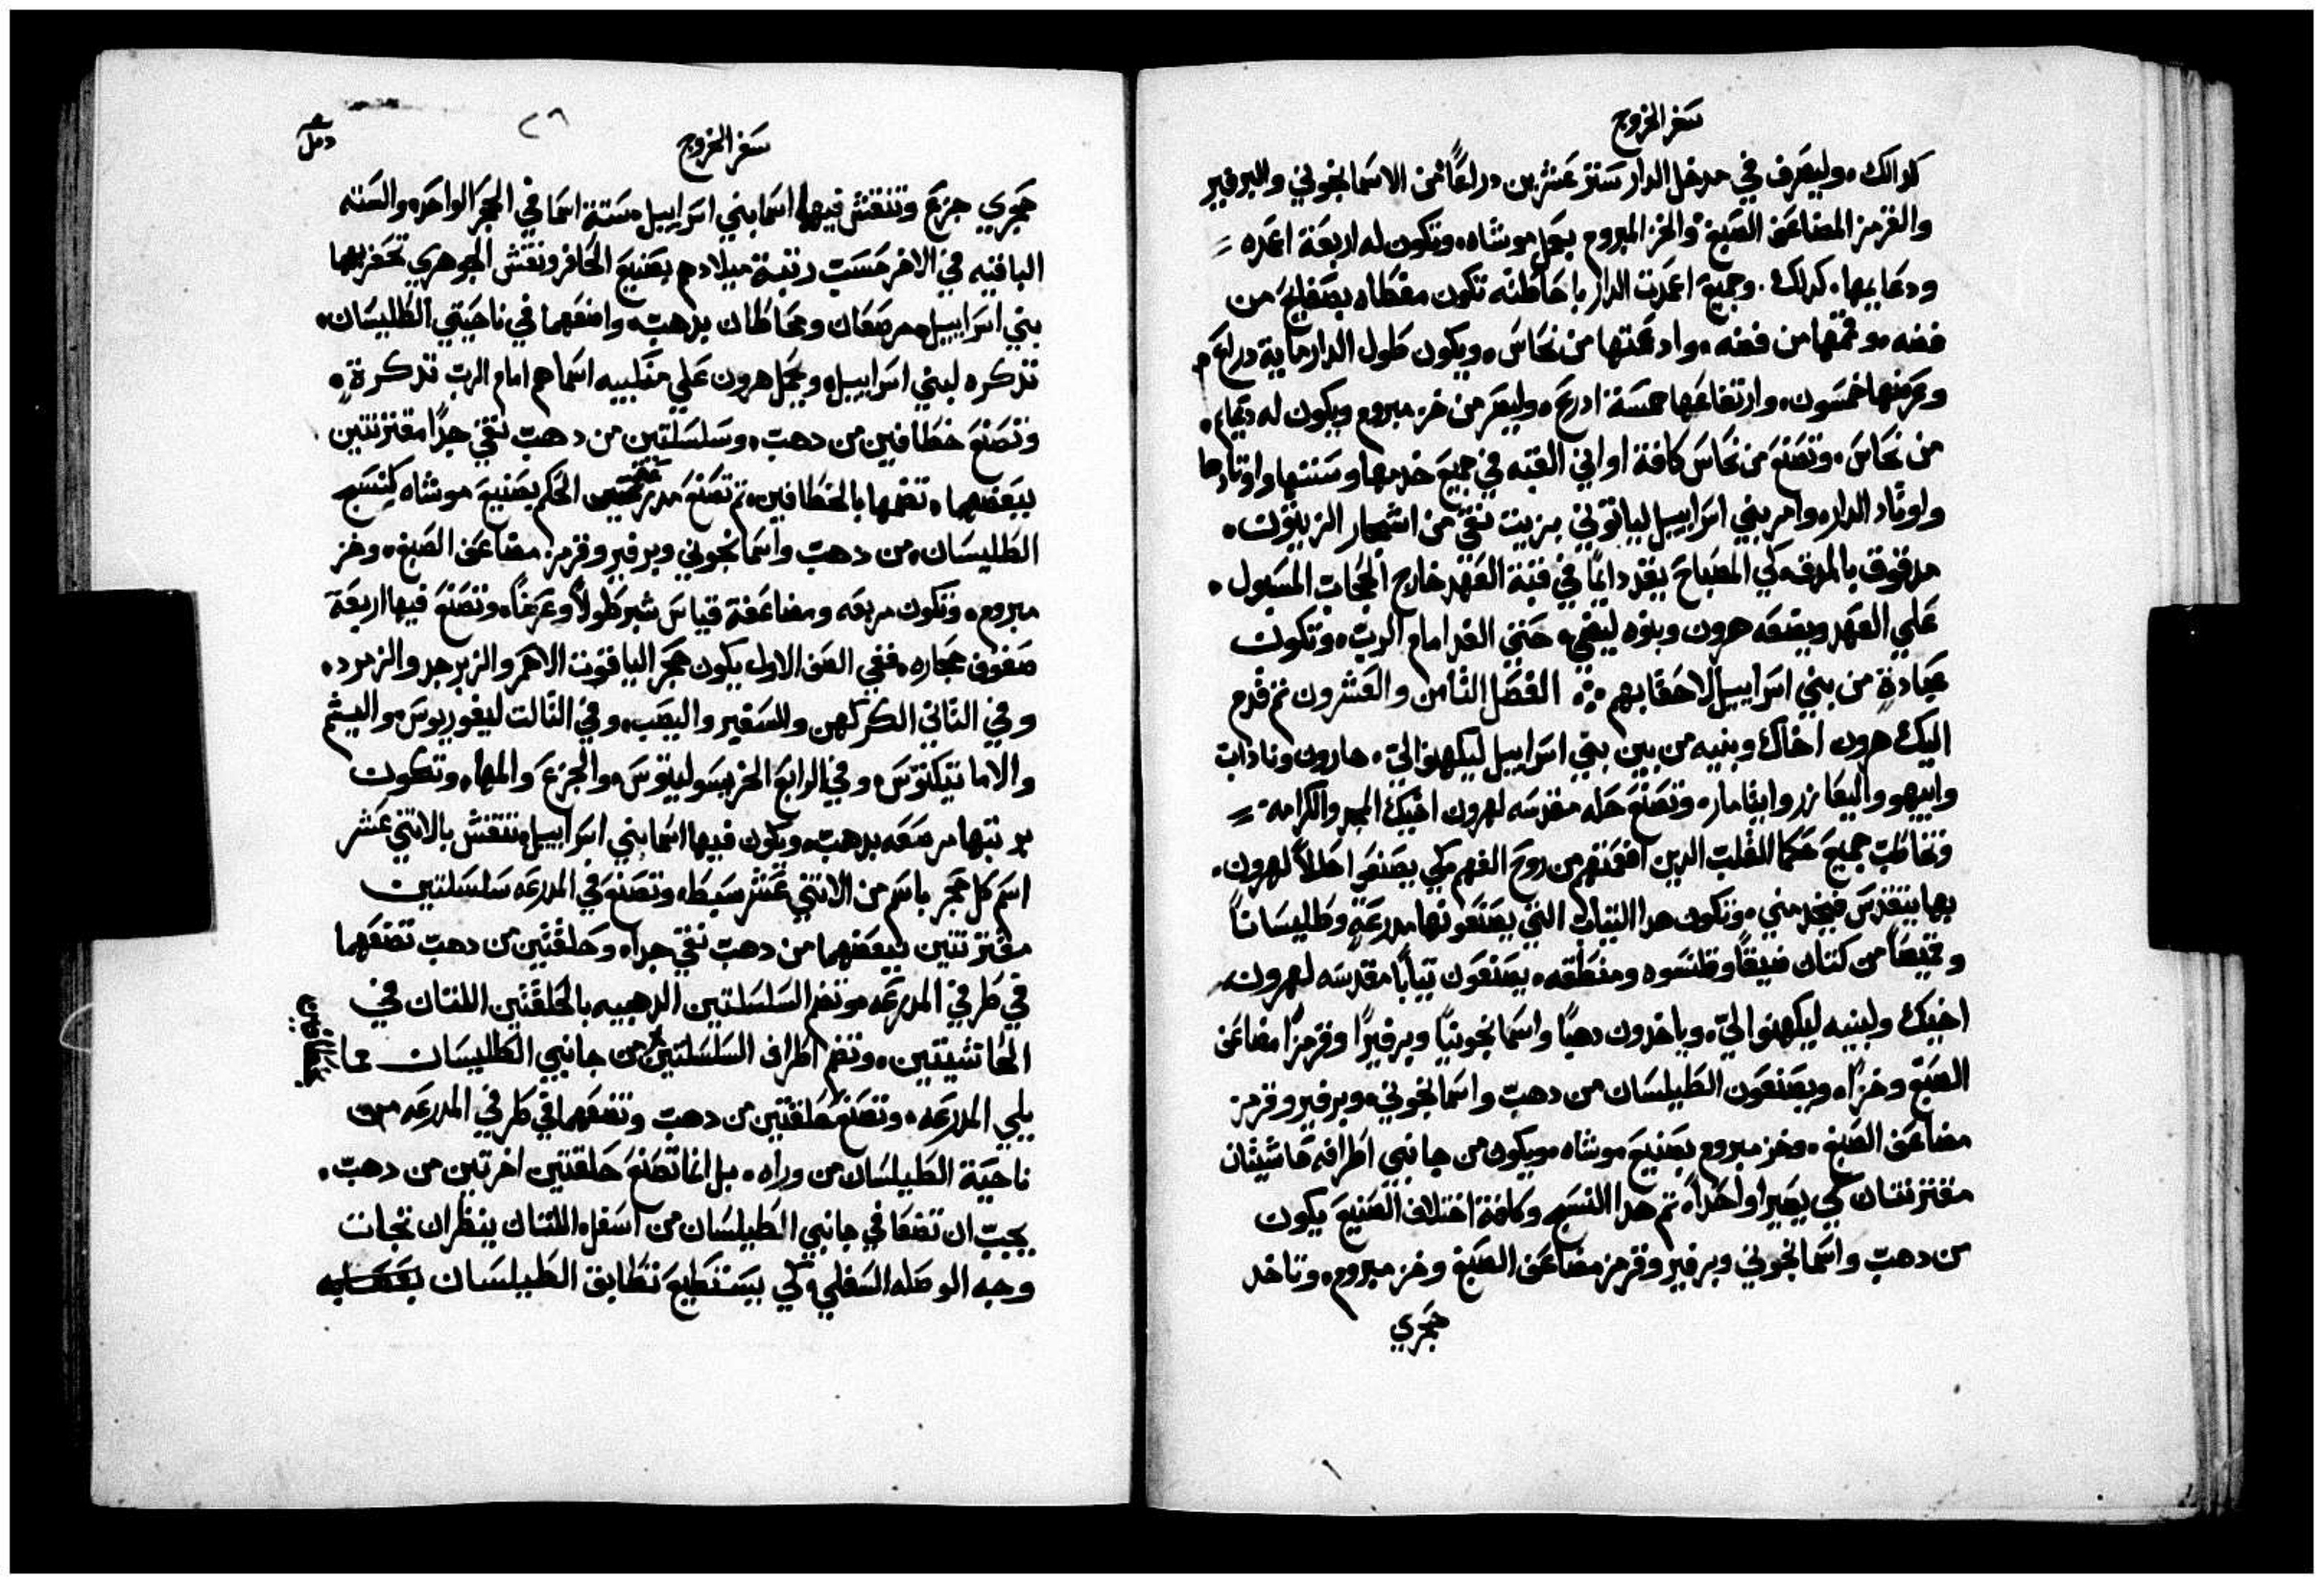 سفر الخروج
كدالك وليصرف في مدخل الدار ستر عشرين دراعًا من الاسمانجوني والبرفير
والقرمز المضاعف الصبغ والخز المبروم بعمل موشاه وتكون له اربعة اعمده
ودعايمها كدلك وجميع اعمدت الدار باحاطته تكون مغطاه بصفايح من
فضه وقممها من فضه وادعمتها من نحاس ويكون طول الدار ماية دراع
وعرضها خمسون وارتفاعها خمسة ادرع وليصر من خز مبروم ويكون له دعايم
من نحاس وتصنع من نحاس كافة اواني القبه في جميع خدمها وسننها واوتادها
واوتاد الدار وامر بني اسراييل لياتوني بزيت نقي من اشجار الزيتون
مدقوق بالمدقه كي المصباح يقد دايمًا في قبة العهد خارج الحجاب المسبول
علي العهد ويضعه هرون وبنوه ليضي حتي الغد امام الرب وتكون
عبادة من بني اسراييل لاحقابهم الفصل التامن والعشرون تم قدم
اليك هرون اخاك وبنيه من بين بني اسراييل ليكهنوا لي هارون وناداب
وابيهو واليعازر وايثامار وتصنع حله مقدسه لهرون اخيك المجد والكرامه
وتخاطب جميع حكما القلب الدين افعمتهم من روح الفهم كي يصنعوا حللاً لهرون
بها يتقدس فيخدمني وتكون هدا التياب التي يصنعونها مدرعة وطليسانًا
وقميصًا من كتان ضيقًا وقلنسوه ومنطقه يصنعون تيابًا مقدسه لهرون
اخيك ولبنيه ليكهنوا لي وياخدون دهبًا واسمانجونيًا وبرفيرًا وقرمزًا مضاعف
الصبغ وخزًا ويصنعون الطيلسان من دهب واسمانجوني وبرفير وقرمز
مضاعف الصبغ وخز مبروم بصنيع موشاه ويكون من جانبي اطرافه حاشيتان
مقترنتان كي يصيرا واحدًا تم هدا النسج وكافة اختلاف الصنيع يكون
من دهب واسمانجوني وبرفير وقرمز مضاعف الصبغ وخز مبروم وتاخد
حجري
٢٦
سفر الخروج
حجري جزع وتنقش فيها اسما بني اسراييل ستة اسما في الحجر الواحد والسته
الباقيه في الاخر حسب رتبة ميلادهم بصنيع الحافر ونقش الجوهري تحفرهما
بني اسراييل مرصعان ومحاطان بدهب واضعهما في ناحيتي الطليسان
تدكره لبني اسراييل ويحمل هرون علي منكبيه اسماهم امام الرب تدكرة
وتصنع خطافين من دهب وسلسلتين من دهب نقي جدًا مقترنتين
ببعضهما تضمها بالخطافين تم تصنع مدرعة الحكم بصنيع موشاه كنسج
الطليسان من دهب واسمانجوني وبرفير وقرمز مضاعف الصبغ وخز
مبروم وتكون مربعه ومضاعفة قياس شبر طولًا وعرضًا وتصنع فيها اربعة
صفوف حجاره ففي الصف الاول يكون حجر الياقوت الاحمر والزبرجد والزمرد
وفي التاني الكركهن والسفير واليصب وفي التالت ليغوريوس واليشم
والاماتيكتوس وفي الرابع الخريسوليتوس والجزع والمها وتكون
مرصعه بدهب ويكون فيها اسما بني اسراييل تنقش بالاتني عشر
اسم كل حجر باسم من الاتني عشر سبطًا وتصنع في المدرعه سلسلتين
مقترنتين ببعضهما من دهب نقي جدًا وحلقتين من دهب تضعهما
في طرفي المدرعه وتضم السلسلتين الدهبيه بالحلقتين اللتان في
الحاشيتين وتضم اطراف السلسلتين من جانبي الطليسان مما
يلي المدرعه وتصنع حلقتين من دهب وتضعهما في طرفي المدرعه من
ناحية الطيلسان من وراه بل انما تصنع حلقتين اخرتين من دهب
يجب ان تضعا في جانبي الطيلسان من اسفل اللتان ينظران تجات
وجه الوصله السفلي كي يستطيع تطابق الطيلسان